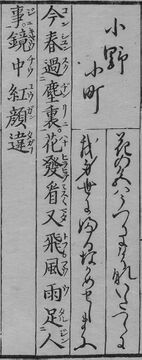 小野
小町
花の色はうつりにけりないたつらに
我身世にふるなかめせしまに
今春過塵裏。花發看又飛風雨足人
事。鏡中紅顔違